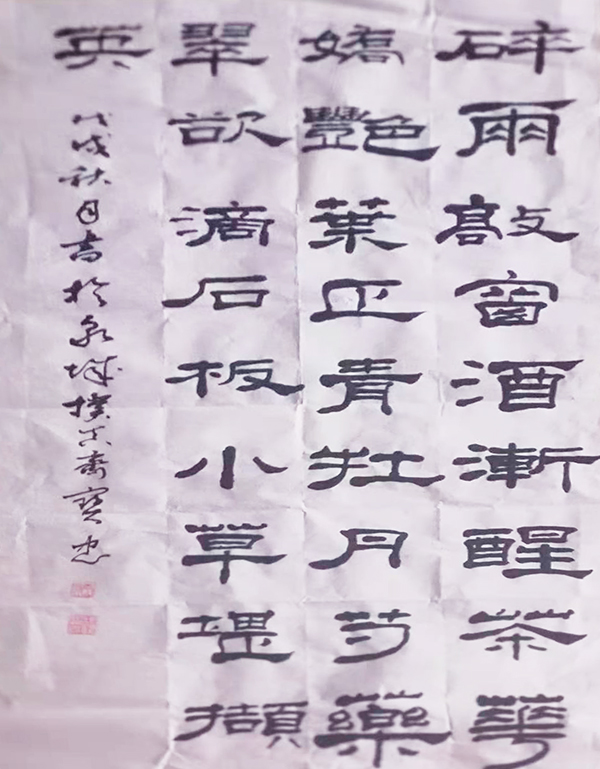 碎雨敲窗酒漸醒茶華
嬌艷葉正青牡丹芍藥
翠欲滴石板小草堪擷
英
戊戌秋月書於泉城齋寶忠